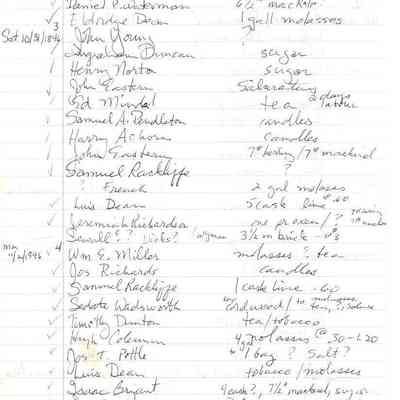 ✓ Daniel P. Unterman 6 1/2 # mack
✓ Eldridge Dean 1 gall molasses
Sat 10/31/1846 3 John Young ?
✓ Ingraham Duncan sugar
✓ Henry Norton sugar
✓ John Eastern Saleratus
✓ Ed tea 2 days labour
✓ Samuel A. Pendleton candles
✓ Harvey Achorn candles
✓ John Eastern
✓ Samuel Rackliffe ?
? French 2 gal molasses
✓ Luis Dean 5 cask lime @ 60
✓ Jeremiah Richardson one
Sewall ? ? Dicks? 3 1/2 m brick
mon 11/2/1846 4 Wm E. Miller molasses & tea
✓ Jos Richards candles
✓ Samuel Rackliffe 1 cask lime .60
✓ Sedate Wadsworth cordwood / to molasses, tea,
✓ Timothy Dunton tea/tobacco
✓ Hugh Coleman 4 gal molasses @ .30 - 1.20
✓ Jos T. Pottle to 1 bag ? Salt?
✓ Luis Dean tobacco / molasses
✓ Isaac Bryant cask?, 7 1/2 # mackrel, sugar